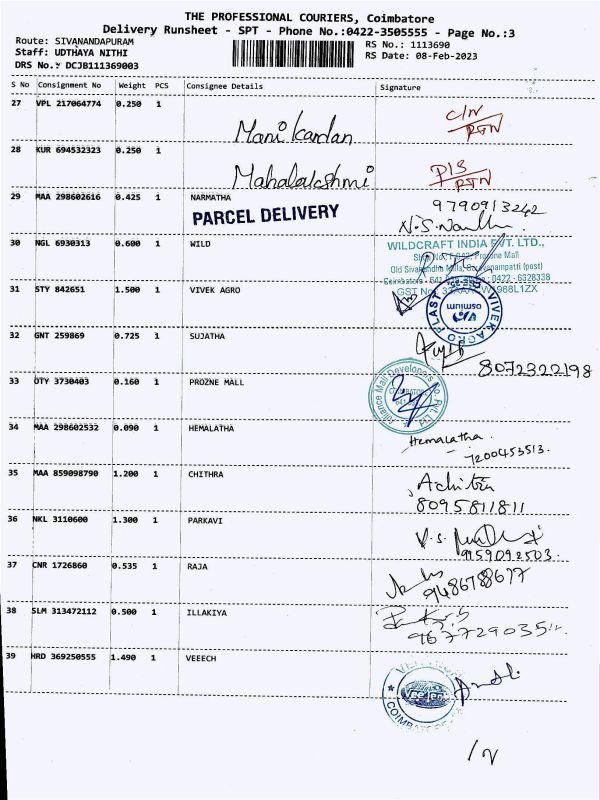 THE PROFESSIONAL COURIERS, Coimbatore
Delivery Runsheet - SPT - Phone No.:0422-3505555 - Page No.:3
Route: SIVANANDAPURAM
RS No.: 1113690
Staff: UDTHAYA NITHI
RS Date: 08-Feb-2023
DRS No.: DCJB111369003
S No Consignment No Weight PCS Consignee Details Signature
27 VPL 217064774 0.250 1 Mani Kandan C/N RTN
28 KUR 694532323 0.250 1 Mahalakshmi RTN
29 MAA 298602616 0.425 1 NARMATHA 9790913242
PARCEL DELIVERY
30 NGL 6930313 0.600 1 WILD WILDCRAFT INDIA PVT. LTD.,
Prozone Mall
Old Sivanandha Mills, (post)
Coimbatore - 641 : 0422 - 6328338
GST No:
31 STY 842651 1.500 1 VIVEK AGRO VIVEK AGRO PLAST osmium
32 GNT 259869 0.725 1 SUJATHA 8072322198
33 OTY 3730403 0.160 1 PROZNE MALL Alliance Mall Developers Co. Pvt. Ltd.
34 MAA 298602532 0.090 1 HEMALATHA Hemalatha.
7200453513.
35 MAA 859098790 1.200 1 CHITHRA Achitra
8095811811
36 NKL 3110600 1.300 1 PARKAVI
9159092503.
37 CNR 1726860 0.535 1 RAJA 9486788677
38 SLM 313472112 0.500 1 ILLAKIYA
39 HRD 369250555 1.490 1 VEEECH COIMBATORE